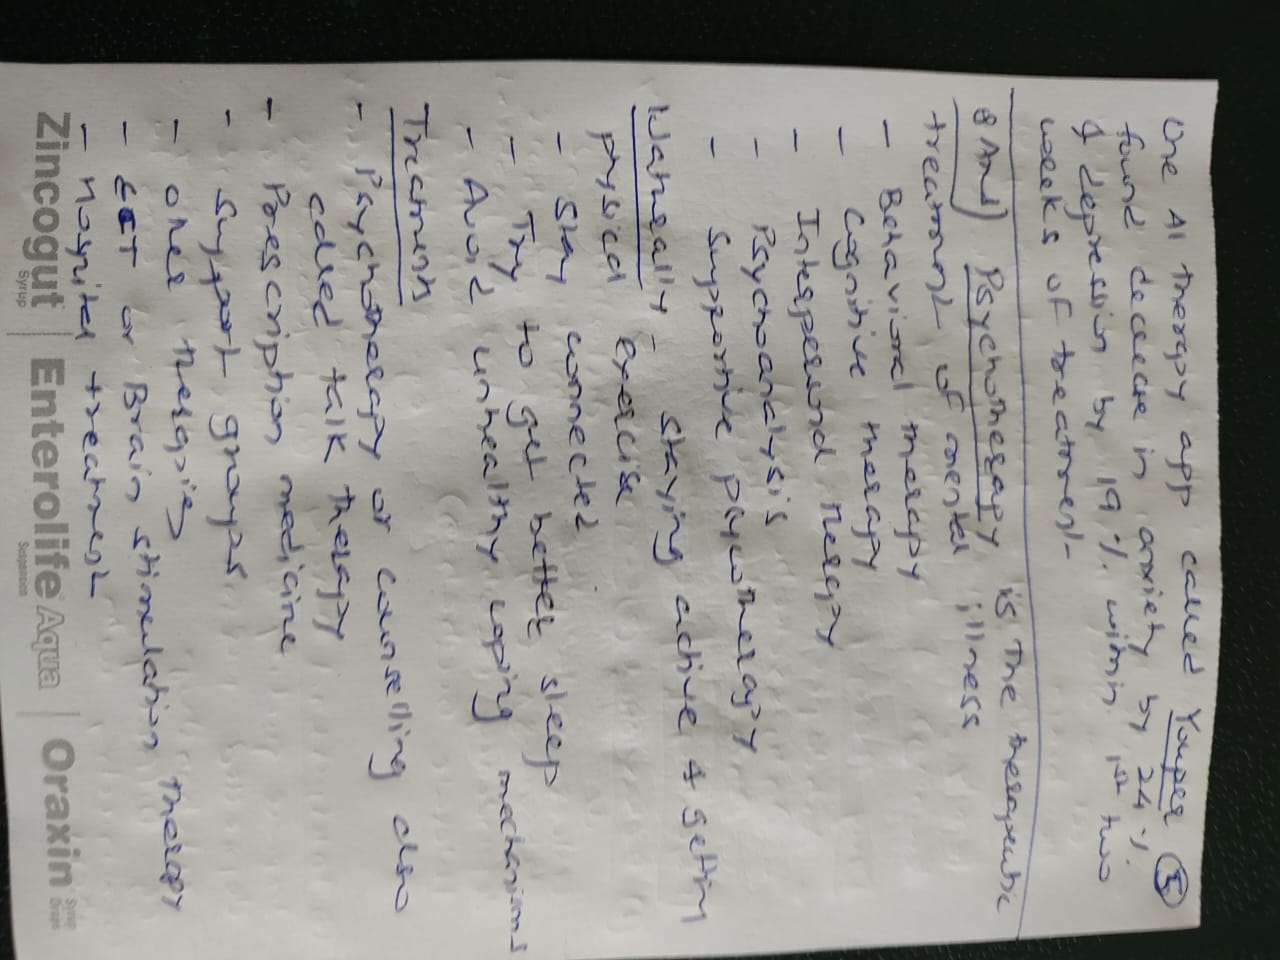 One AI therapy app called Youper ⑤
found decrease in anxiety by 24 %.
& depression by 19 %. within 1st two
weeks of treatment
8 Ans) Psychotherapy is the therapeutic
treatment of mental illness
- Behavioral therapy
- Cognitive therapy
- Interpersonal therapy
- Psychoanalysis
- Supportive psychotherapy
Naturally - staying active & getting
physical exercise
- Stay connected
- Try to get better sleep
- Avoid unhealthy coping mechanisms
Treatments
- Psychotherapy or counselling also
called talk therapy
- Prescription medicine
- Support groups
- other therapies
- ECT or Brain stimulation therapy
- Hospital treatment
Zincogut Syrup | Enterolife Aqua Suspension | Oraxin Syrup Drops